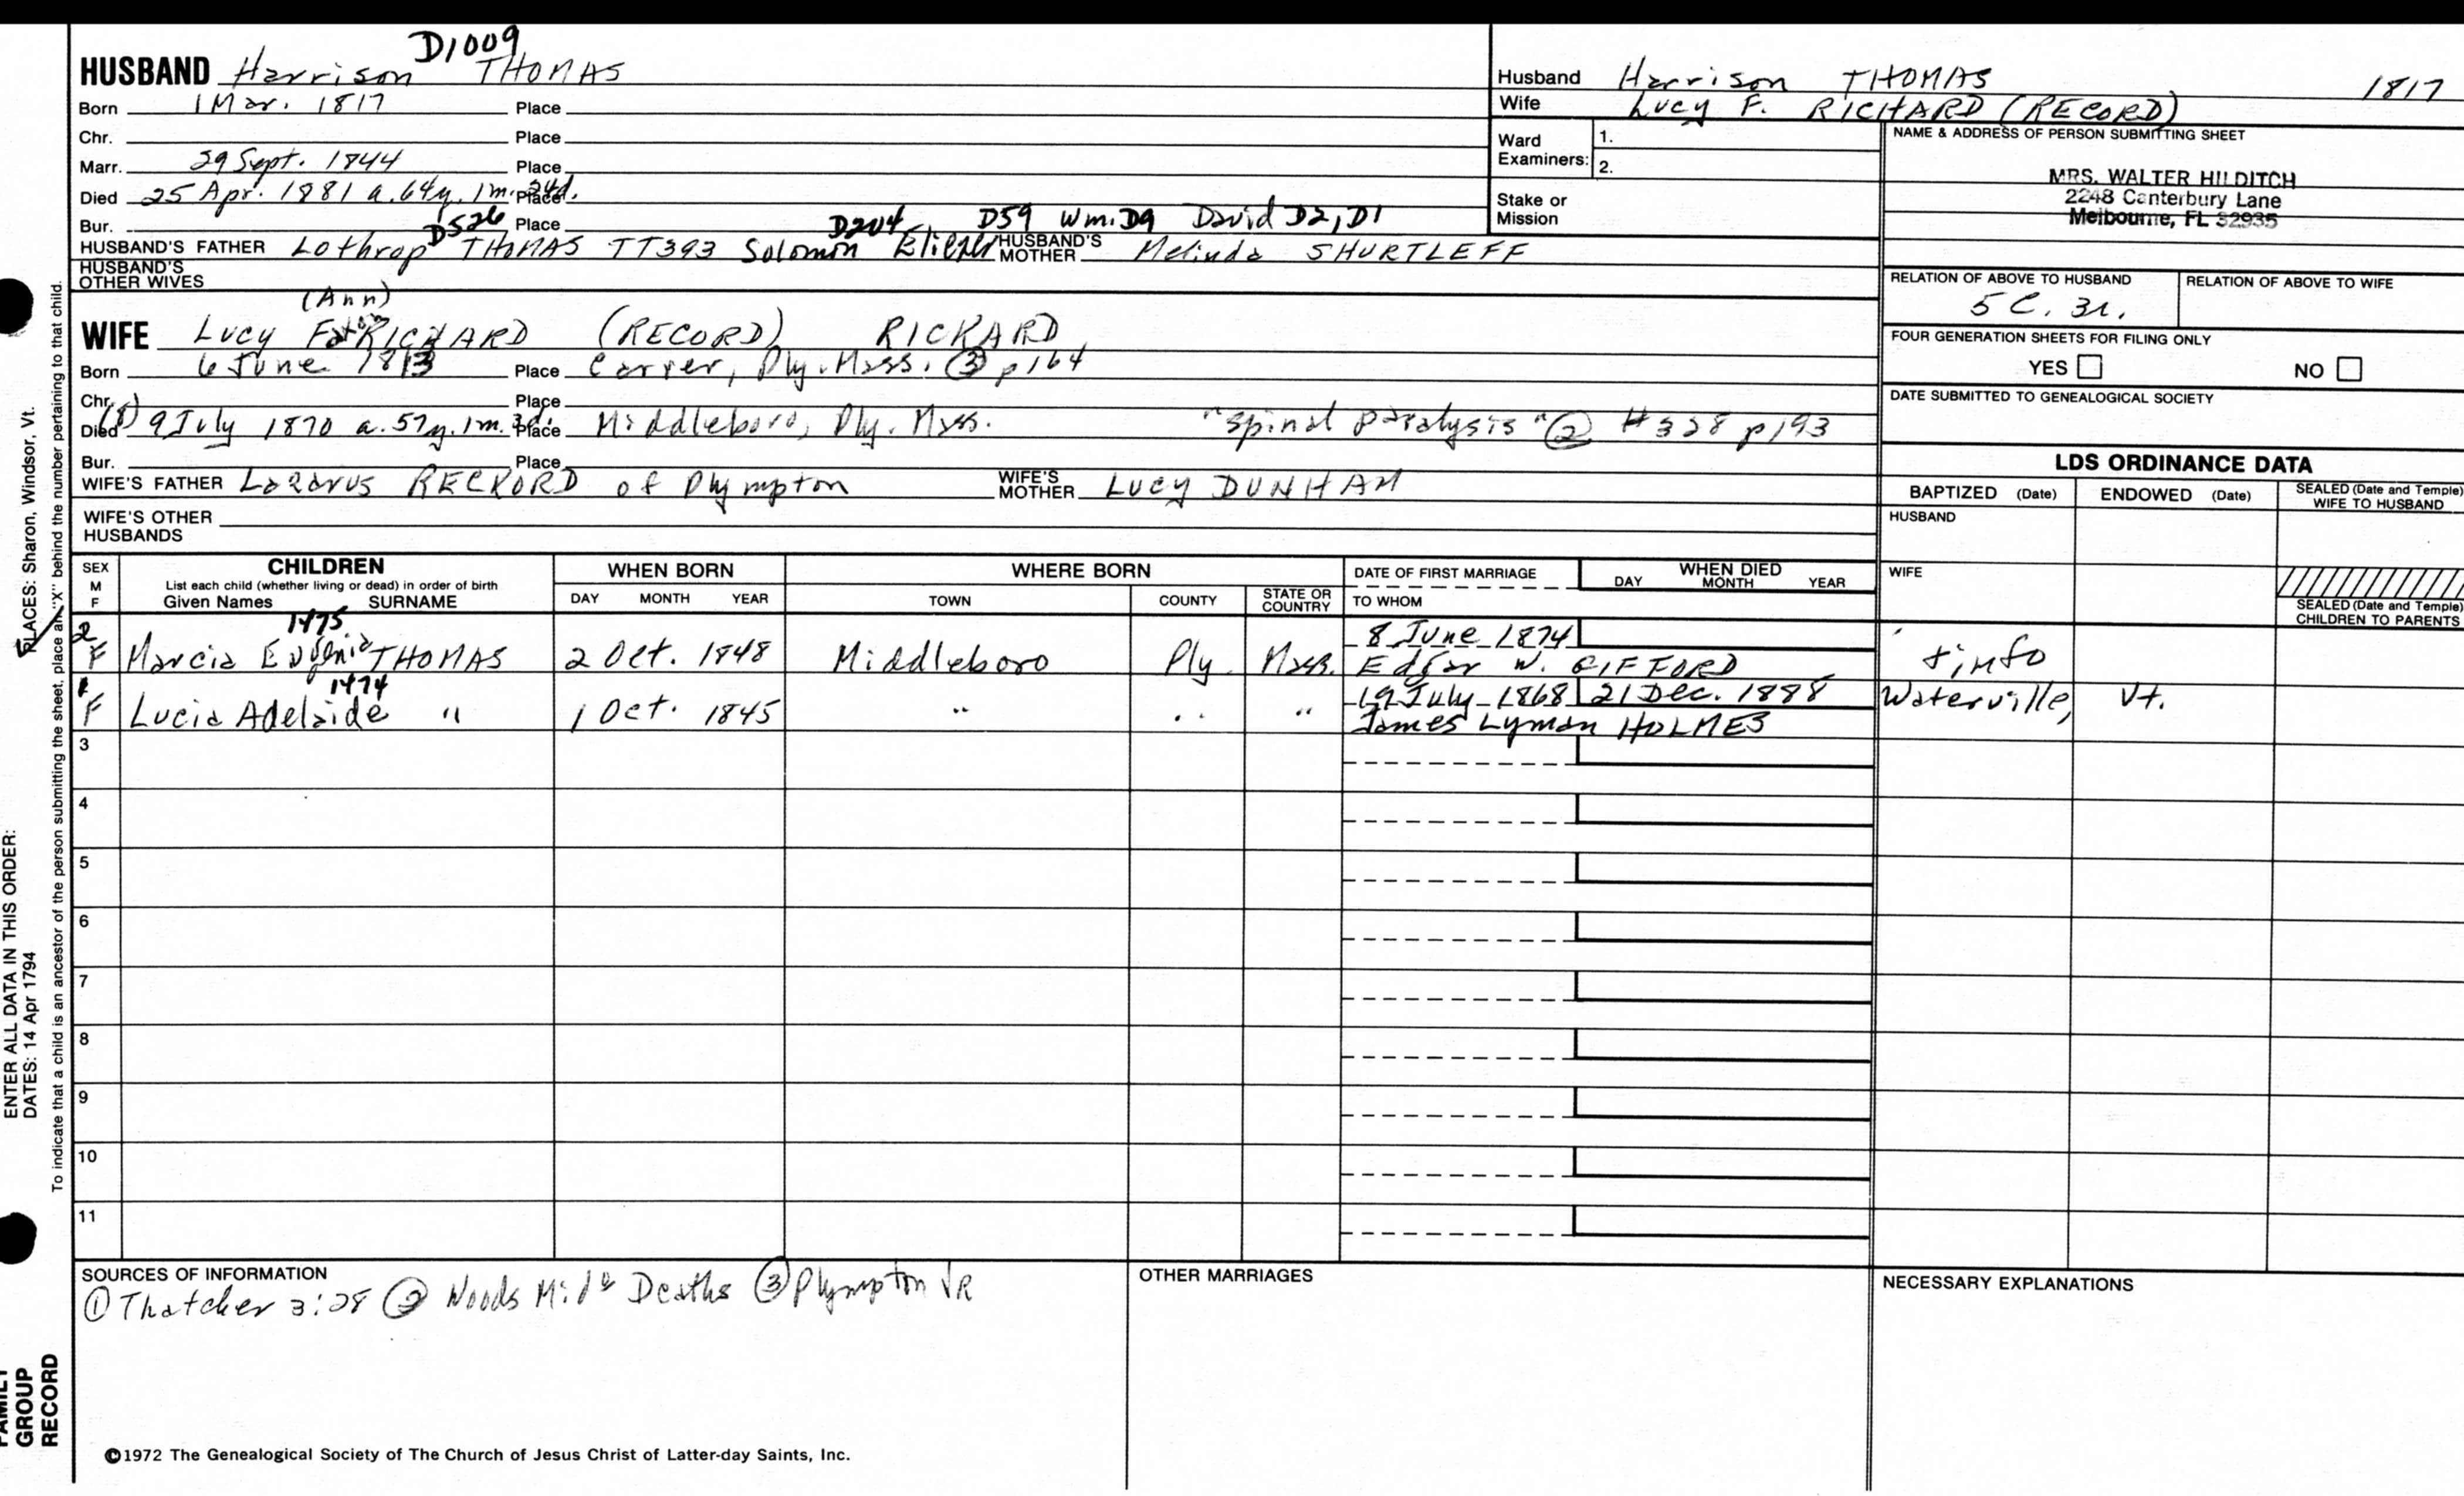 D1009
HUSBAND Harrison THOMAS
Born 1 Mar. 1817 Place
Chr. Place
Marr. 29 Sept. 1844 Place
Died 25 Apr. 1881 a. 64y. 1m. 24d. Place
Bur. Place
D526 D204 D59 Wm. D9 David D2, D1
HUSBAND'S FATHER Lothrop THOMAS TT393 Solomon HUSBAND'S MOTHER Melinda SHURTLEFF
HUSBAND'S OTHER WIVES
(Ann)
WIFE Lucy F. RICHARD (RECORD) RICKARD
Born 6 June 1813 Place Carver, Ply. Mass. ③ p164
Chr. Place
Died (1) 9 July 1870 a. 57y. 1m. 3d. Place Middleboro, Ply. Mass. "spinal paralysis" ② #328 p193
Bur. Place
WIFE'S FATHER Lazarus RECKORD of Plympton WIFE'S MOTHER Lucy DUNHAM
WIFE'S OTHER HUSBANDS
Husband Harrison THOMAS 1817
Wife Lucy F. RICHARD (RECORD)
Ward Examiners: 1.
2.
Stake or Mission
NAME & ADDRESS OF PERSON SUBMITTING SHEET
MRS. WALTER HILDITCH
2248 Canterbury Lane
Melbourne, FL 32935
RELATION OF ABOVE TO HUSBAND RELATION OF ABOVE TO WIFE
5 C. 3r.
FOUR GENERATION SHEETS FOR FILING ONLY
YES NO
DATE SUBMITTED TO GENEALOGICAL SOCIETY
LDS ORDINANCE DATA
BAPTIZED (Date) ENDOWED (Date) SEALED (Date and Temple) WIFE TO HUSBAND
HUSBAND
WIFE
SEALED (Date and Temple) CHILDREN TO PARENTS
SEX M F
CHILDREN
List each child (whether living or dead) in order of birth
Given Names SURNAME
WHEN BORN
DAY MONTH YEAR
WHERE BORN
TOWN COUNTY STATE OR COUNTRY
DATE OF FIRST MARRIAGE
TO WHOM
WHEN DIED
DAY MONTH YEAR
1475
2 F Marcia Eugenia THOMAS 2 Oct. 1848 Middleboro Ply. Mass. 8 June 1874
Edgar W. GIFFORD
1474
1 F Lucia Adelaide " 1 Oct. 1845 " " " 19 July 1868 21 Dec. 1888 Waterville, Vt.
James Lyman HOLMES
3
4
5
6
7
8
9
10
11
SOURCES OF INFORMATION
① Thatcher 3:28 ② Woods Mid. Deaths ③ Plympton VR
OTHER MARRIAGES
NECESSARY EXPLANATIONS
©1972 The Genealogical Society of The Church of Jesus Christ of Latter-day Saints, Inc.
ENTER ALL DATA IN THIS ORDER:
DATES: 14 Apr 1794 PLACES: Sharon, Windsor, Vt.
To indicate that a child is an ancestor of the person submitting the sheet, place an "X" behind the number pertaining to that child.
GROUP
RECORD